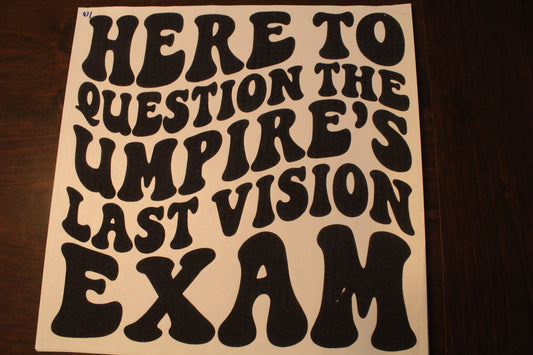 HERE TO
QUESTION THE
UMPIRE'S
LAST VISION
EXAM